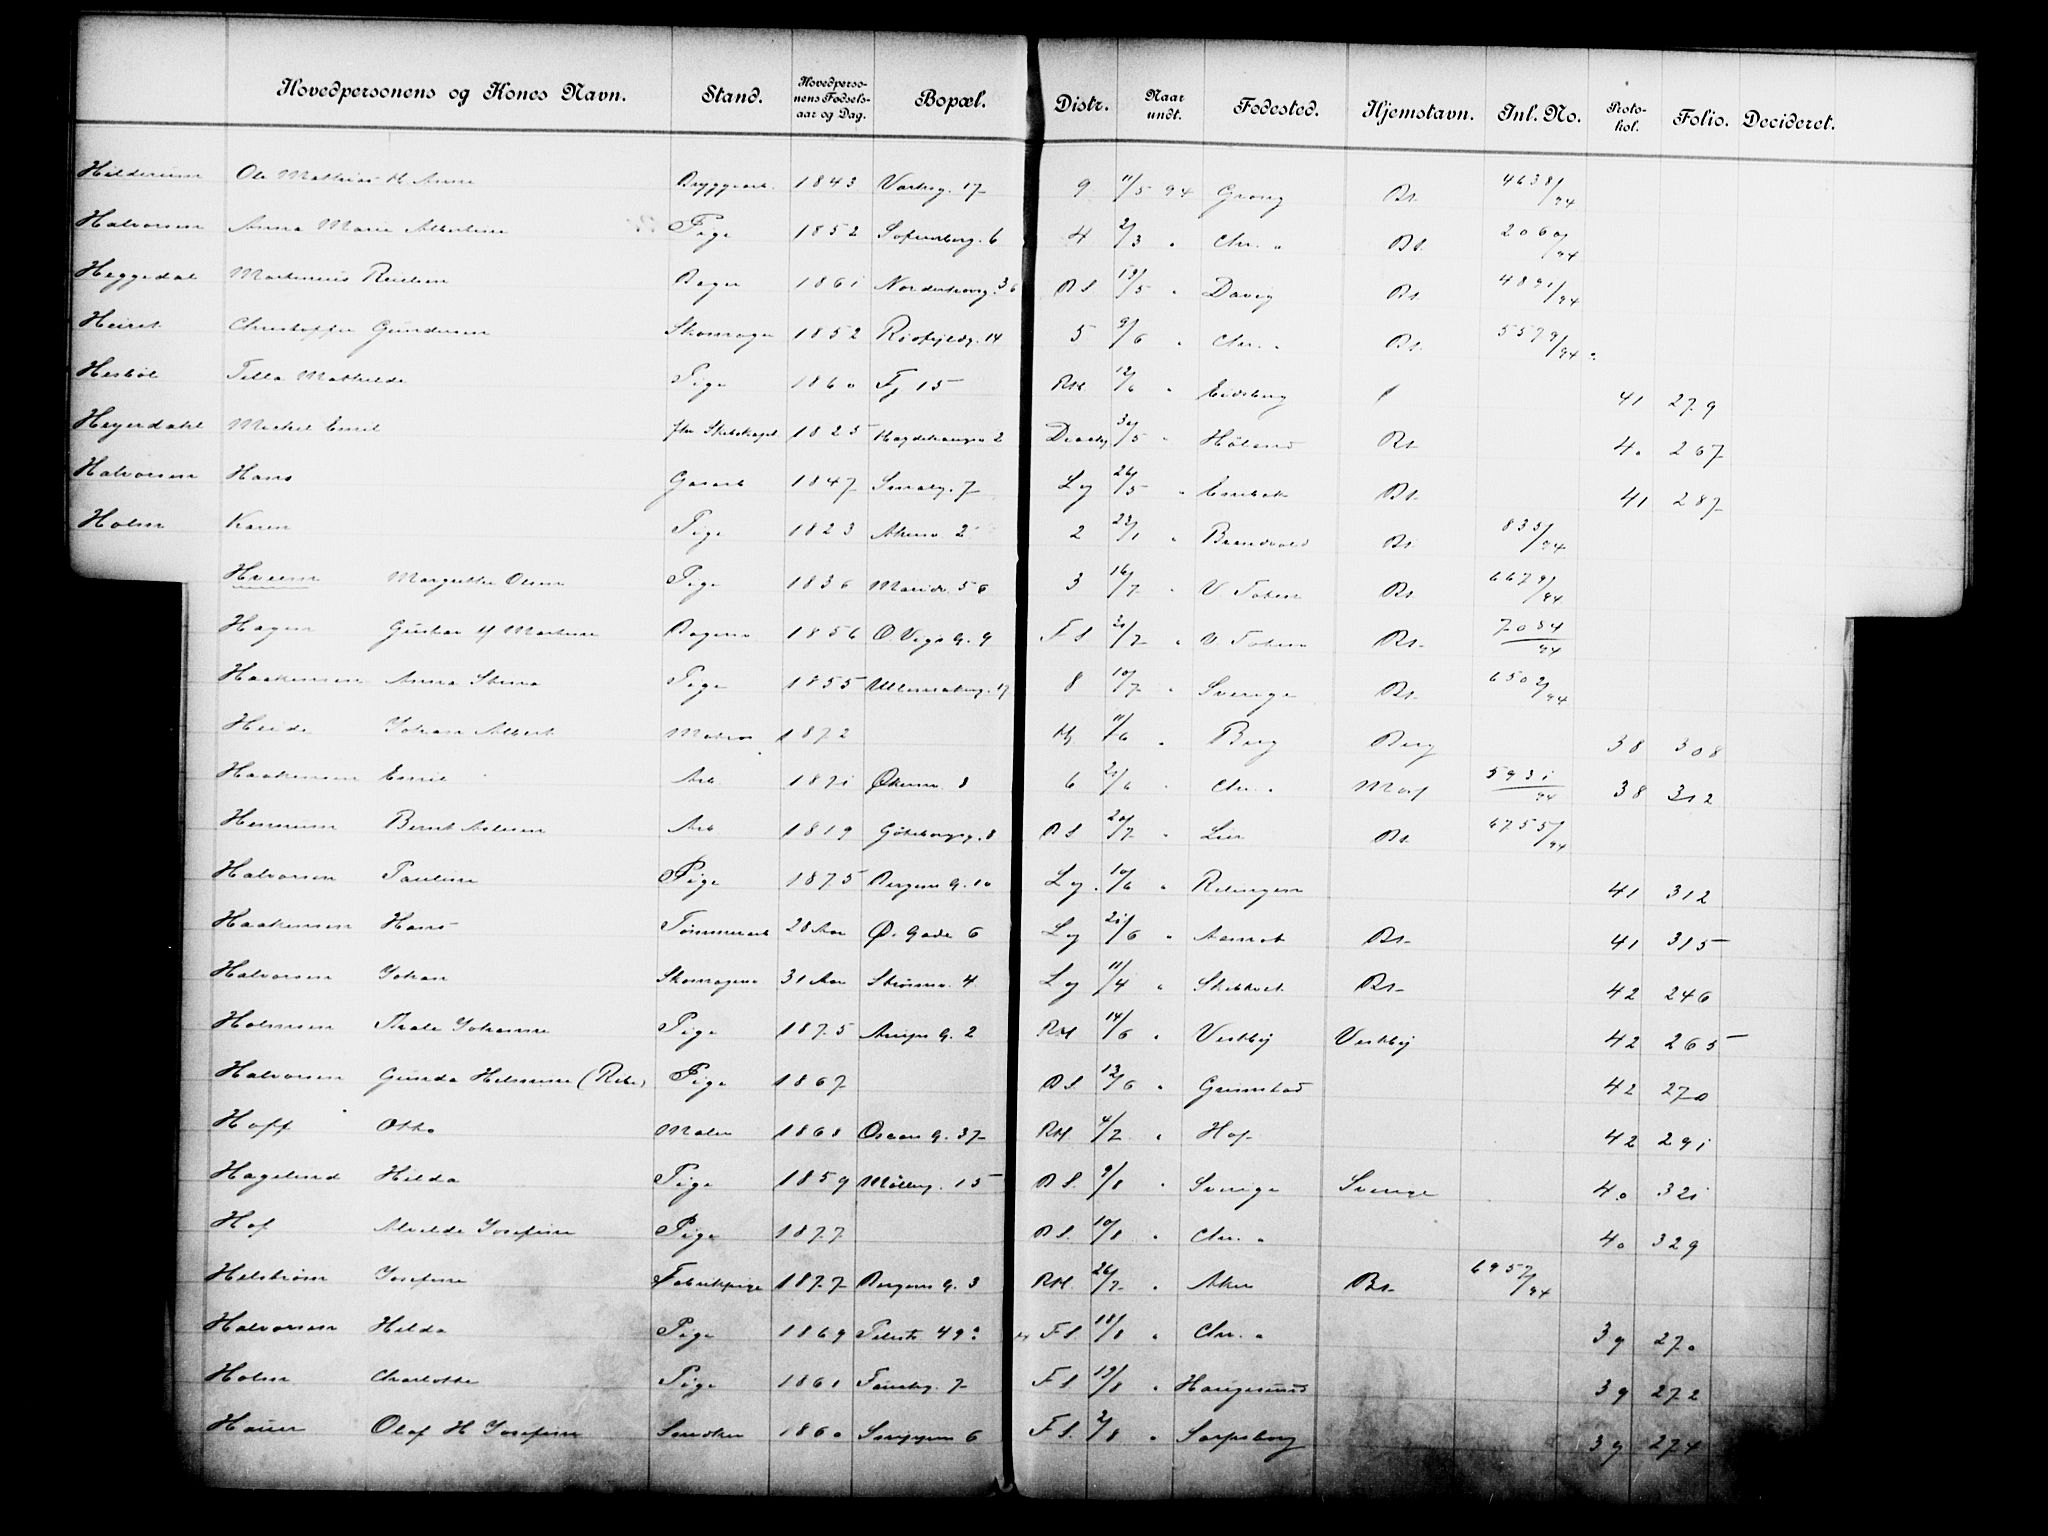 Hovedpersonens og Kones Navn. Stand. Hovedpersonens Fødselsaar og Dag. Bopæl. Distr. Naar undt. Fødested. Hjemstavn. Inl. No. Protokol. Folio. Decideret.
Hilderum Ole Mathias Anne Bryggearb. 1843 17 9 11/5 94 Grong Bt. 4638/94
Halvorsen Anna Marie Albertine Pige 1852 Sofienberg. 6 4 2/3 " Chr. a Bt. 2060/94
Heggedal Martinius Reielsen Bager 1861 36 B S. 13/5 " Davig Bt. 4891/94
Christoffer Gundersen Skomager 1852 14 5 9/6 " Chr. a Bt. 5579/94
Hesbøl Mathilde Pige 1860 15 RH. 12/6 " Eidsberg 41 279
Heyerdahl Michel Emil fhv Skibskapt 1825 Hegdehaugen 2 30/5 " Høland Bt 40 267
Halvorsen Hans Gasarb 1847 Smalg. 7 Lg 26/5 " Enebak Bt. 41 287
Holm Karen Pige 1823 Akersv 2 2 23/1 " Brandvold Bt. 835/94
Hveem Margrethe Olsen Pige 1836 Marid. 56 3 16/7 " V. Toten Bt. 6679/94
Hagen Gustav Martine Bogens 1856 Ø. Vogt G. 9 F S 21/7 " V. Toten Bt. 7084/94
Haakensen Anna Stina Pige 1855 17 8 10/7 " Sverige Bt. 6502/94
Heide Johan Albert Matros 1872 11/6 " Berg Berg 38 308
Haakensen Emil Arb. 1871 Økernv. 8 6 21/6 " Chr. a 5931/94 38 312
Henerum Bernt Arb 1819 Göteborgg. 8 B S 20/7 " Lier Bt. 6755/94
Halvorsen Pauline Pige 1875 Bergens G. 10 Lg. 10/6 " Relingen 41 312
Haakensen Hans Tømmerarb 28 Aar Ø. Gade 6 Lg 21/6 " Bt. 41 315
Halvorsen Johan Skomagers 31 Aar Strømsv. 4 Lg 11/4 " Skibtvet Bt. 42 246
Holmsen Thale Johanne Pige 1875 G. 2 RH 14/6 " Vestby Vestby 42 265
Halvorsen Gunda Helmine Pige 1867 B S. 12/6 " Grimstad 42 270
Hoff Otto Maler 1868 Oscars G. 37 RH. 4/7 " Hof 42 291
Hagelund Hilda Pige 1859 Mölleg. 15 B S. 9/8 " Sverige Sverige 40 321
Hof Alvilde Josefine Pige 1877 B S. 10/8 " Chr. a 40 329
Helstrøm Josefine Fabrikpige 1877 Bergens G. 3 RH. 26/7 " Aker Bt. 6957/94
Halvorsen Hilda Pige 1869 49a F S. 18/8 " Chr. a 39 270
Holm Charlotte Pige 1861 7 F S 13/8 " Haugesund 39 272
Hauer Olaf H Josefine Snedker 1860 6 F S. 2/8 " Sarpsborg 39 274